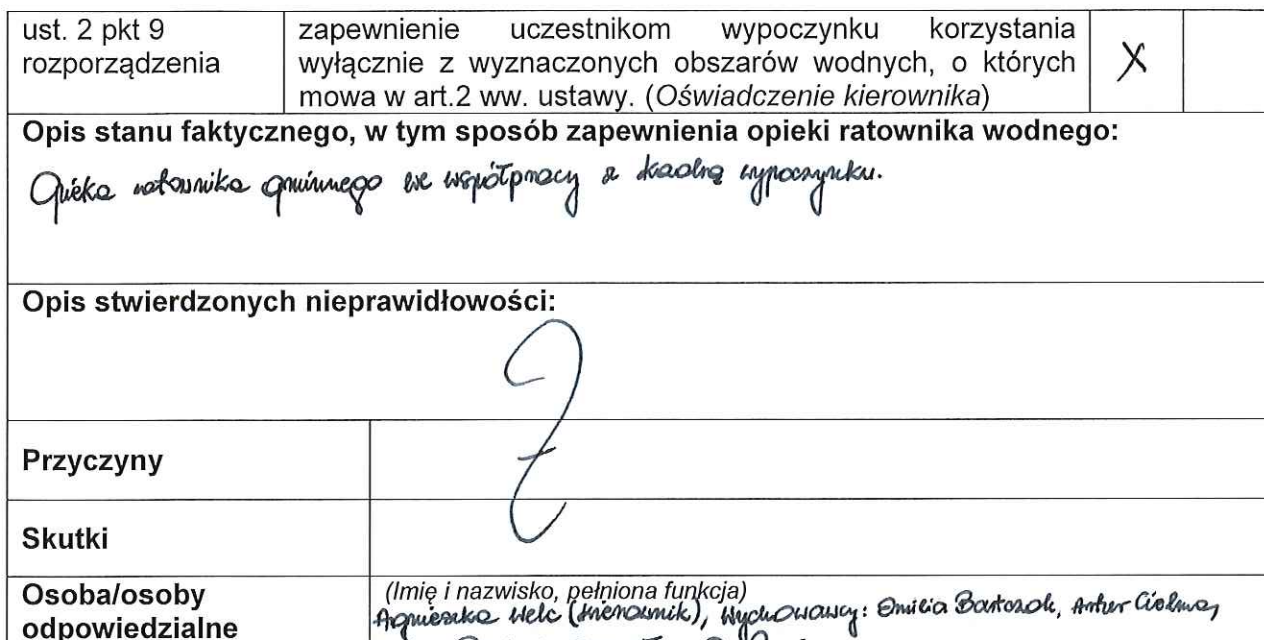 ust. 2 pkt 9
rozporządzenia
zapewnienie uczestnikom wypoczynku korzystania
wyłącznie z wyznaczonych obszarów wodnych, o których
mowa w art.2 ww. ustawy. (Oświadczenie kierownika)
X
Opis stanu faktycznego, w tym sposób zapewnienia opieki ratownika wodnego:
Opieka ratownika gminnego we współpracy z kadrą wypoczynku.
Opis stwierdzonych nieprawidłowości:
Przyczyny
Skutki
Osoba/osoby
odpowiedzialne
(Imię i nazwisko, pełniona funkcja)
Agnieszka Welc (kierownik), Wychowawcy: Emilia Bartosok, Artur